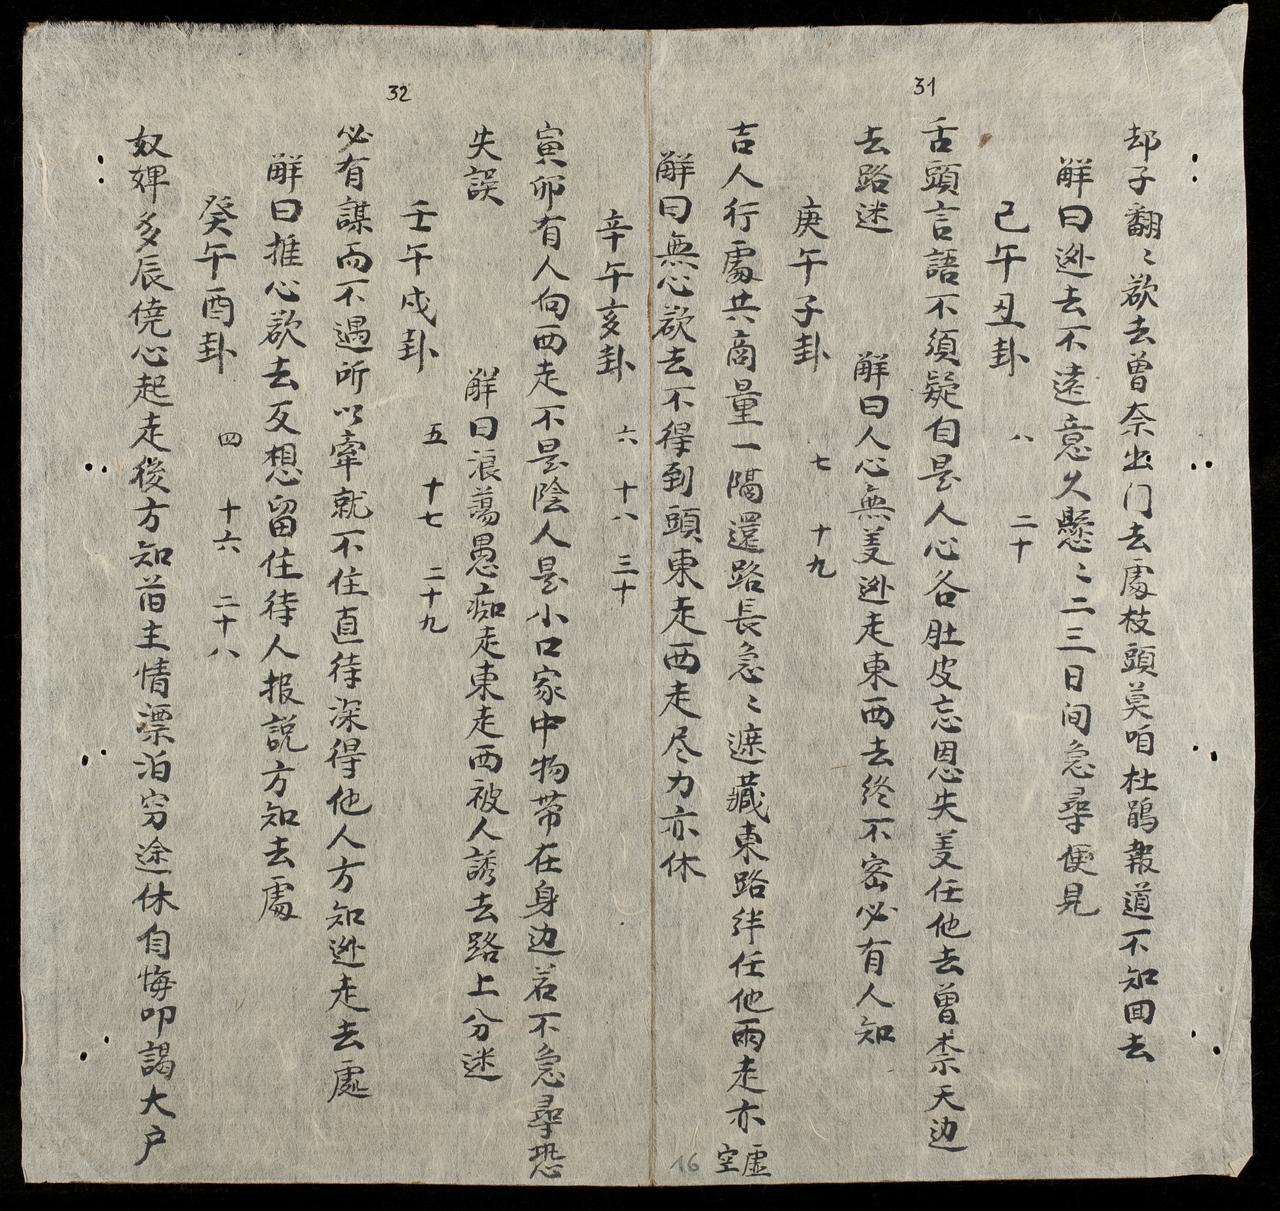 31
却子翻〻欲去曾奈出门去處枝頭莫咱杜鵑報道不知囬去
解曰逃去不遠意久懸〻二三日间急尋便見
己午丑卦 八 二十
舌頭言語不須疑自是人心各肚皮忘恩失羙任他去曾柰天边
去路迷 解曰人心無羙逃走東西去終不密必有人知
庚午子卦 七 十九
吉人行處共商量一隔還路長急〻遮藏東路絆任他兩走亦虛空
解曰無心欲去不得到頭東走西走尽力亦休
16
32
辛午亥卦 六 十八 三十
寅卯有人向西走不是陰人是小口家中物帶在身边若不急尋恐
失誤 解曰浪蕩愚痴走東走西被人誘去路上分迷
壬午戌卦 五 十七 二十九
必有謀而不遇所以牽就不住直待深得他人方知逃走去處
解曰推心欲去反想留住待人报説方知去處
癸午酉卦 四 十六 二十八
奴婢多辰僥心起走後方知首主情漂泊穷途休自悔叩謁大户